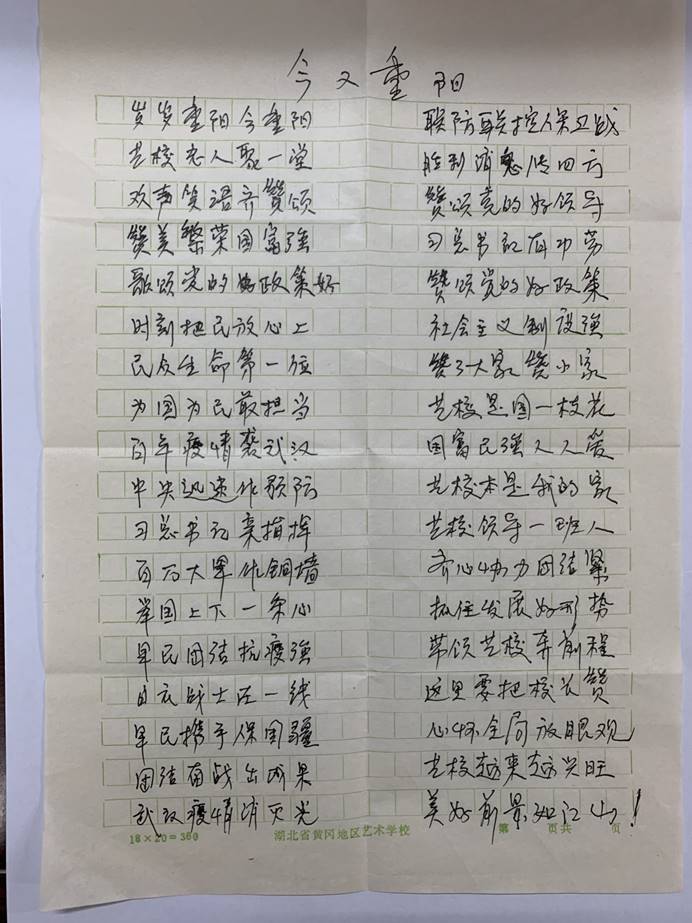 今又重阳
岁岁重阳今重阳
艺校老人聚一堂
欢声笑语齐赞颂
赞美繁荣国富强
歌颂党的好政策好
时刻把民放心上
民众生命第一位
为国为民敢担当
百年疫情袭武汉
中央迅速作预防
习总书记亲指挥
百万大军作铜墙
举国上下一条心
军民团结抗疫强
白衣战士在一线
军民携手保国疆
团结奋战出成果
武汉疫情消灭光
联防联控保卫战
胜利消息传四方
赞颂党的好领导
习总书记有功劳
赞颂党的好政策
社会主义制设强
赞了大家赞小家
艺校是国一枝花
国富民强人人爱
艺校本是我的家
艺校领导一班人
齐心协力团结紧
抓住发展好形势
带领艺校奔前程
这里要把校长赞
心怀全局放眼观
艺校越来越兴旺
美好前景如江山！
18×20=360
湖北省黄冈地区艺术学校
第 页共 页